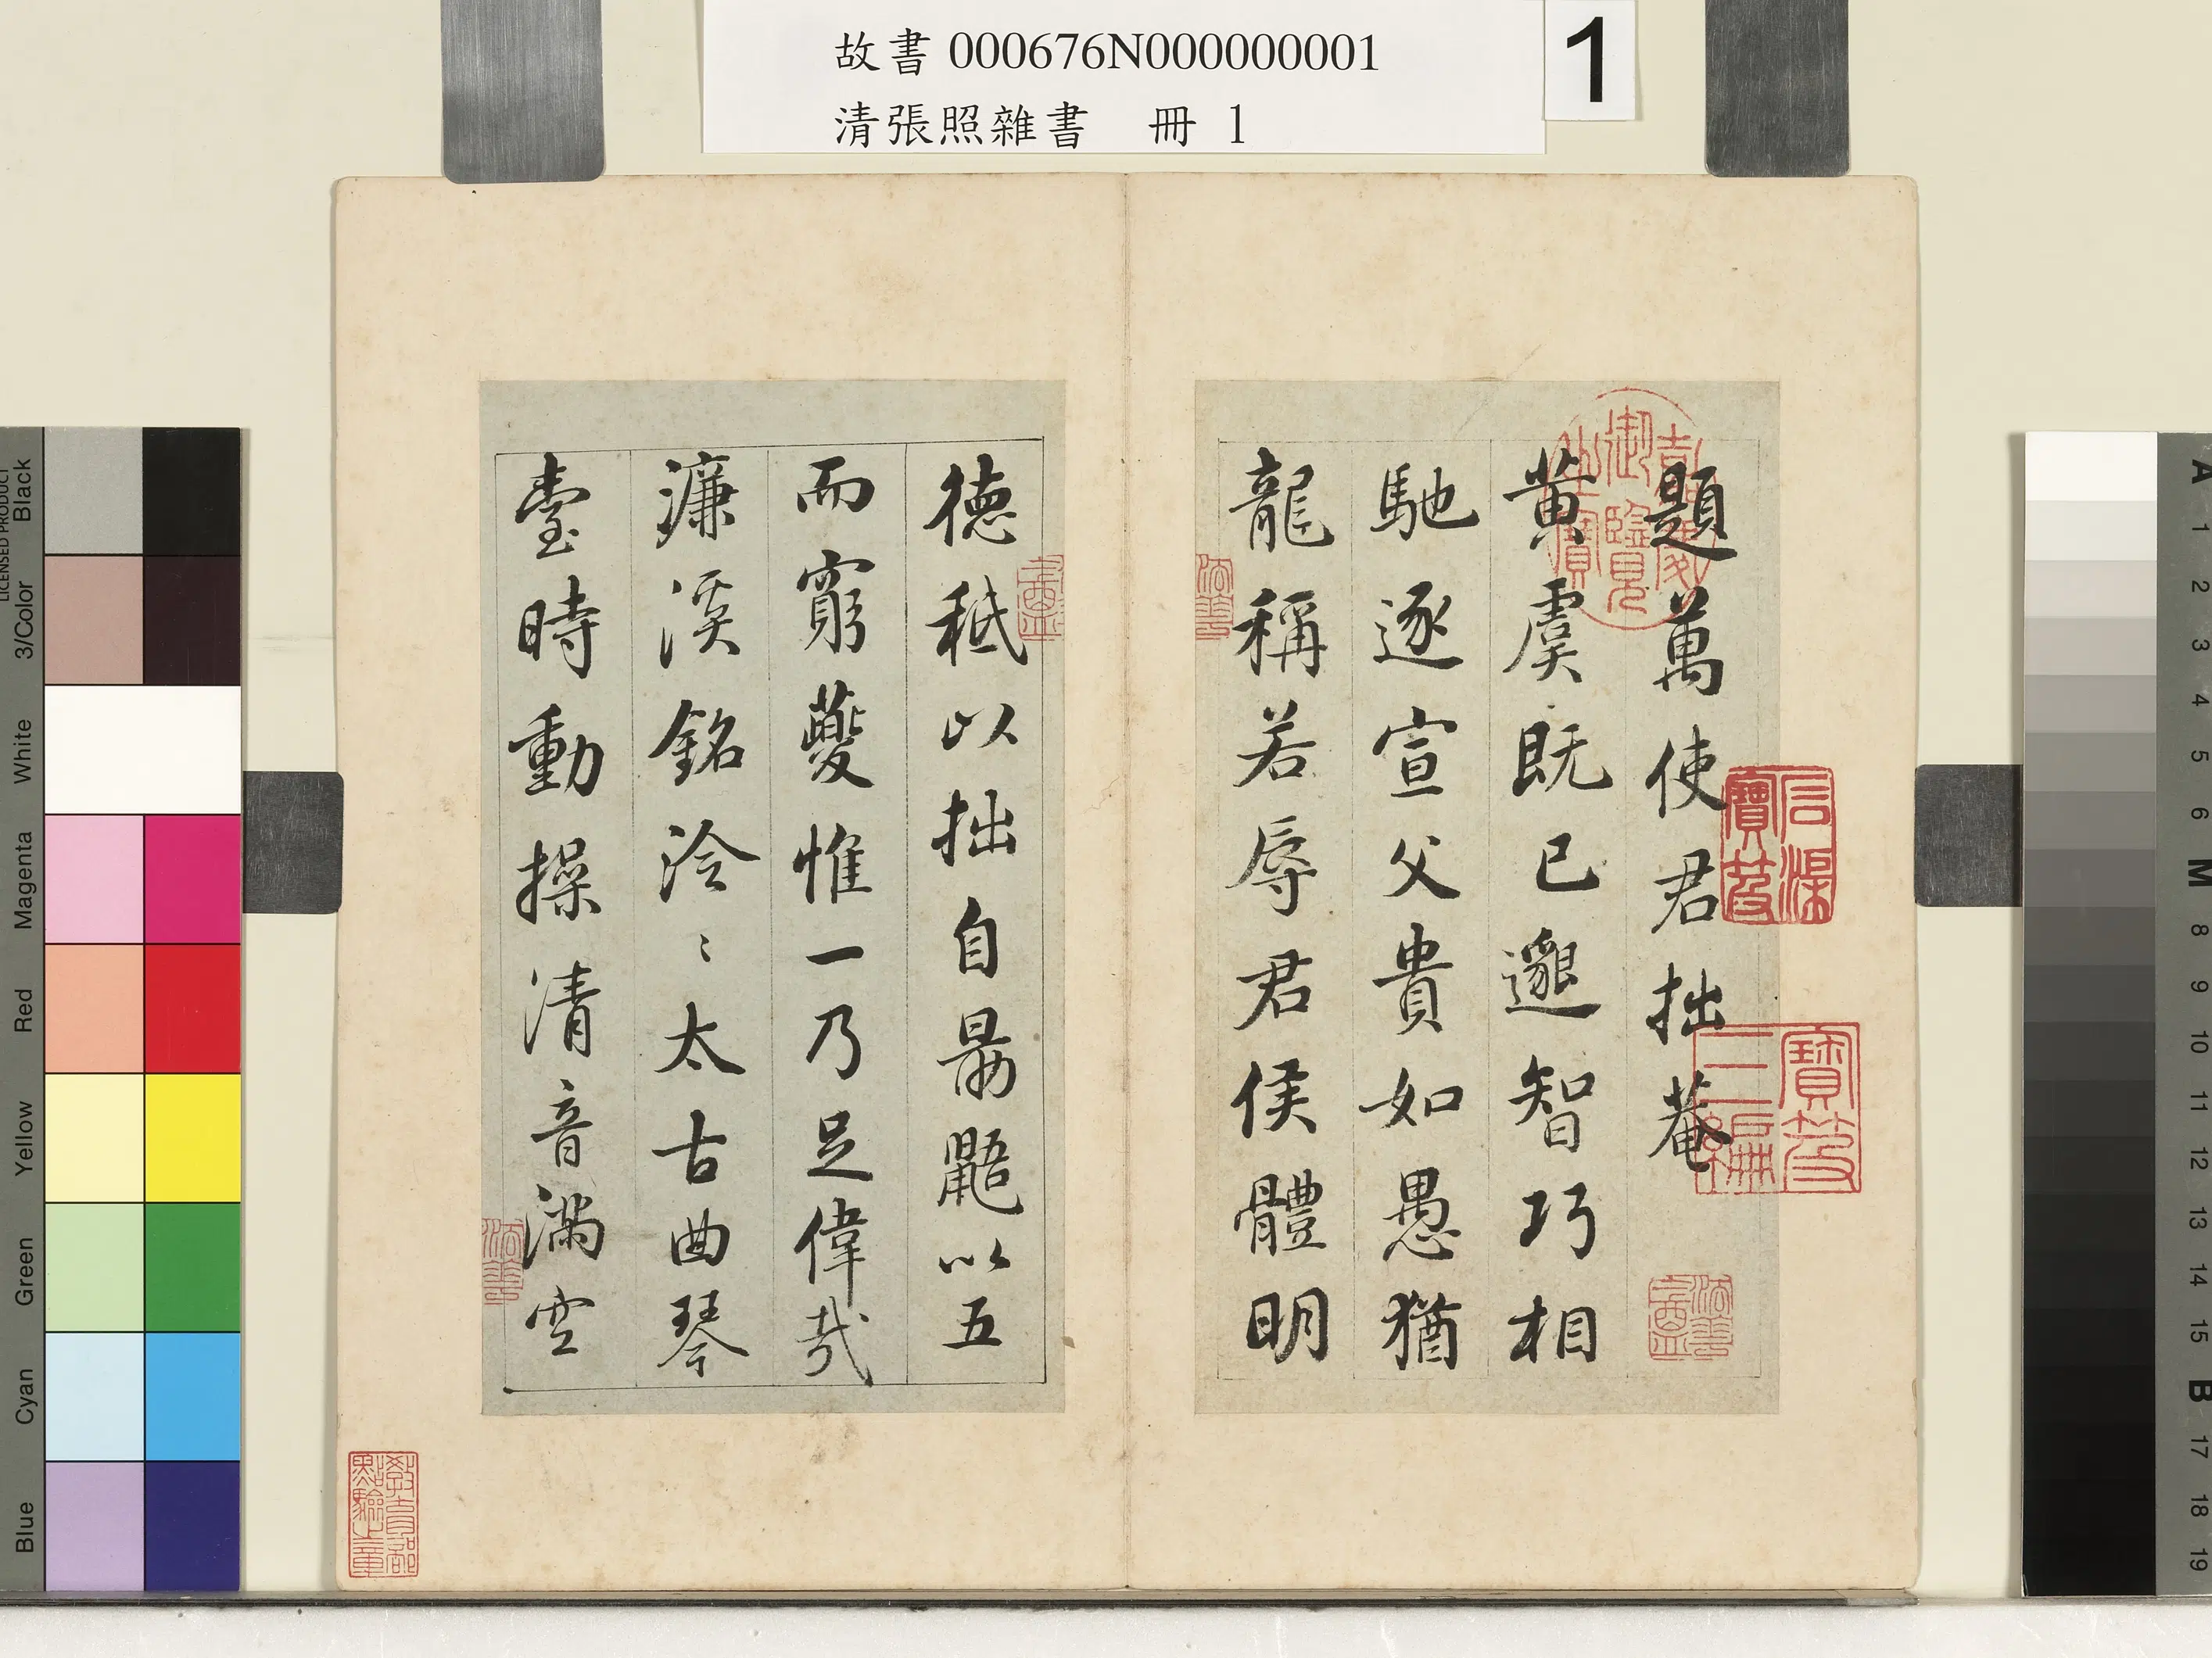 故書 000676N000000001
清張照雜書 冊 1
1
題萬使君拙菴
黃虞既已邈智巧相
馳逐宣父貴如愚猶
龍稱若辱君侯體明
德秪以拙自勗鼯以五
而窮夔惟一乃足偉哉
濂溪銘泠〻太古曲琴
臺時動操清音滿空
嘉慶御覽之寶
石渠寶笈
寶笈三編
教育部點驗之章
LICENSED PRODUCT
Black
3/Color
White
Magenta
Red
Yellow
Green
Cyan
Blue
A
1
2
3
4
5
6
M
8
9
10
11
12
13
14
15
B
17
18
19